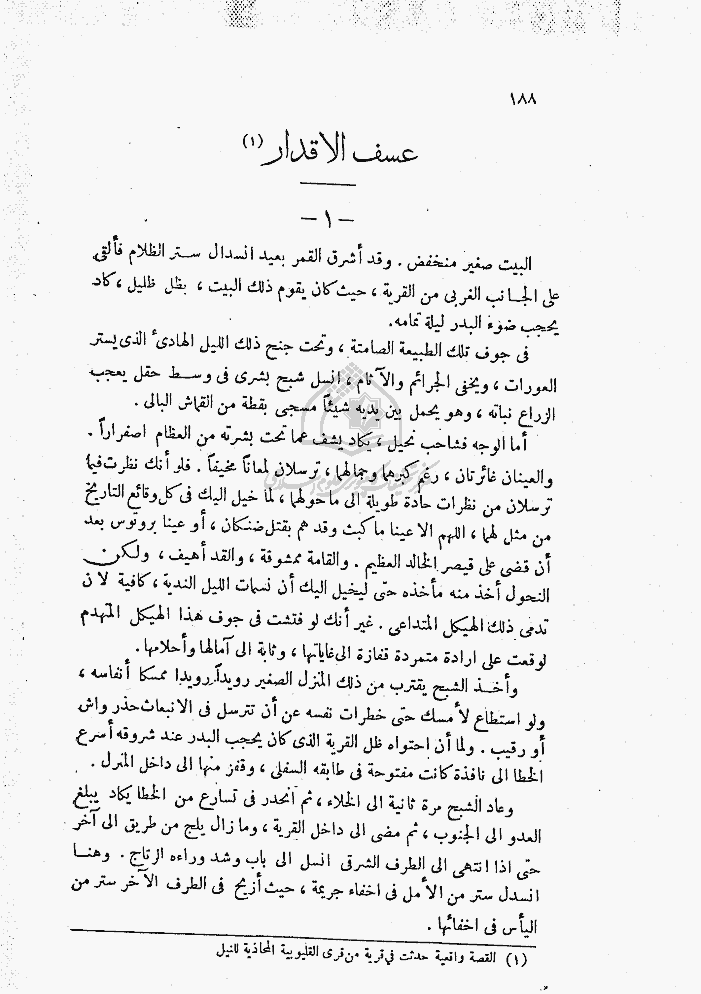 ١٨٨
عسف الاقدار (١)
— ١ —
البيت صغير منخفض . وقد أشرق القمر بعيد انسدال ستر الظلام فألقى
على الجانب الغربى من القرية ، حيث كان يقوم ذلك البيت ، بظل ظليل ، كاد
يحجب ضوء البدر ليلة تمامه .
فى جوف تلك الطبيعة الصامتة ، وتحت جنح ذلك الليل الهادىء الذى يستر
العورات ، ويخفى الجرائم والآثام ، انسل شبح بشرى فى وسط حقل يعجب
الزراع نباته ، وهو يحمل بين يديه شيئاً مسجى بقطة من القماش البالى .
أما الوجه فشاحب نحيل ، يكاد يشف عما تحت بشرته من العظام اصفراراً .
والعينان غائرتان ، رغم كبرهما وجمالهما ، ترسلان لمعاناً مخيفاً . فلو أنك نظرت فيما
ترسلان من نظرات حادة طويلة الى ما حولهما ، لما خيل اليك فى كل وقائع التاريخ
من مثل لهما ، اللهم الا عينا ماكبث وقد هم بقتل ضنكان ، أو عينا بروتوس بعد
أن قضى على قيصر الخالد العظيم . والقامة ممشوقة ، والقد أهيف ، ولكن
النحول أخذ منه مأخذه حتى ليخيل اليك أن نسمات الليل الندية ، كافية لان
تدمى ذلك الهيكل المتداعى . غير أنك لو فتشت فى جوف هذا الهيكل المتهدم
لوقعت على ارادة متمردة قفازة الى غاياتها ، وثابة الى آمالها وأحلامها .
وأخذ الشبح يقترب من ذلك المنزل الصغير رويداً رويدا ممسكا أنفاسه ،
ولو استطاع لأمسك حتى خطرات نفسه عن أن تترسل فى الانبعاث حذر واش
أو رقيب . ولما أن احتواه ظل القرية الذى كان يحجب البدر عند شروقه أسرع
الخطا الى نافذة كانت مفتوحة فى طابقه السفلى ، وقفز منها الى داخل المنزل .
وعاد الشبح مرة ثانية الى الخلاء ، ثم انحدر فى تسارع من الخطا يكاد يبلغ
العدو الى الجنوب ، ثم مضى الى داخل القرية ، وما زال يلج من طريق الى آخر
حتى اذا انتهى الى الطرف الشرقى انسل الى باب وشد وراءه الرتاج . وهنا
انسدل ستر من الأمل فى اخفاء جريمة ، حيث أزيح فى الطرف الآخر ستر من
اليأس فى اخفائها .
(١) القصة واقعية حدثت فى قرية من قرى القليوبية المحاذية للنيل